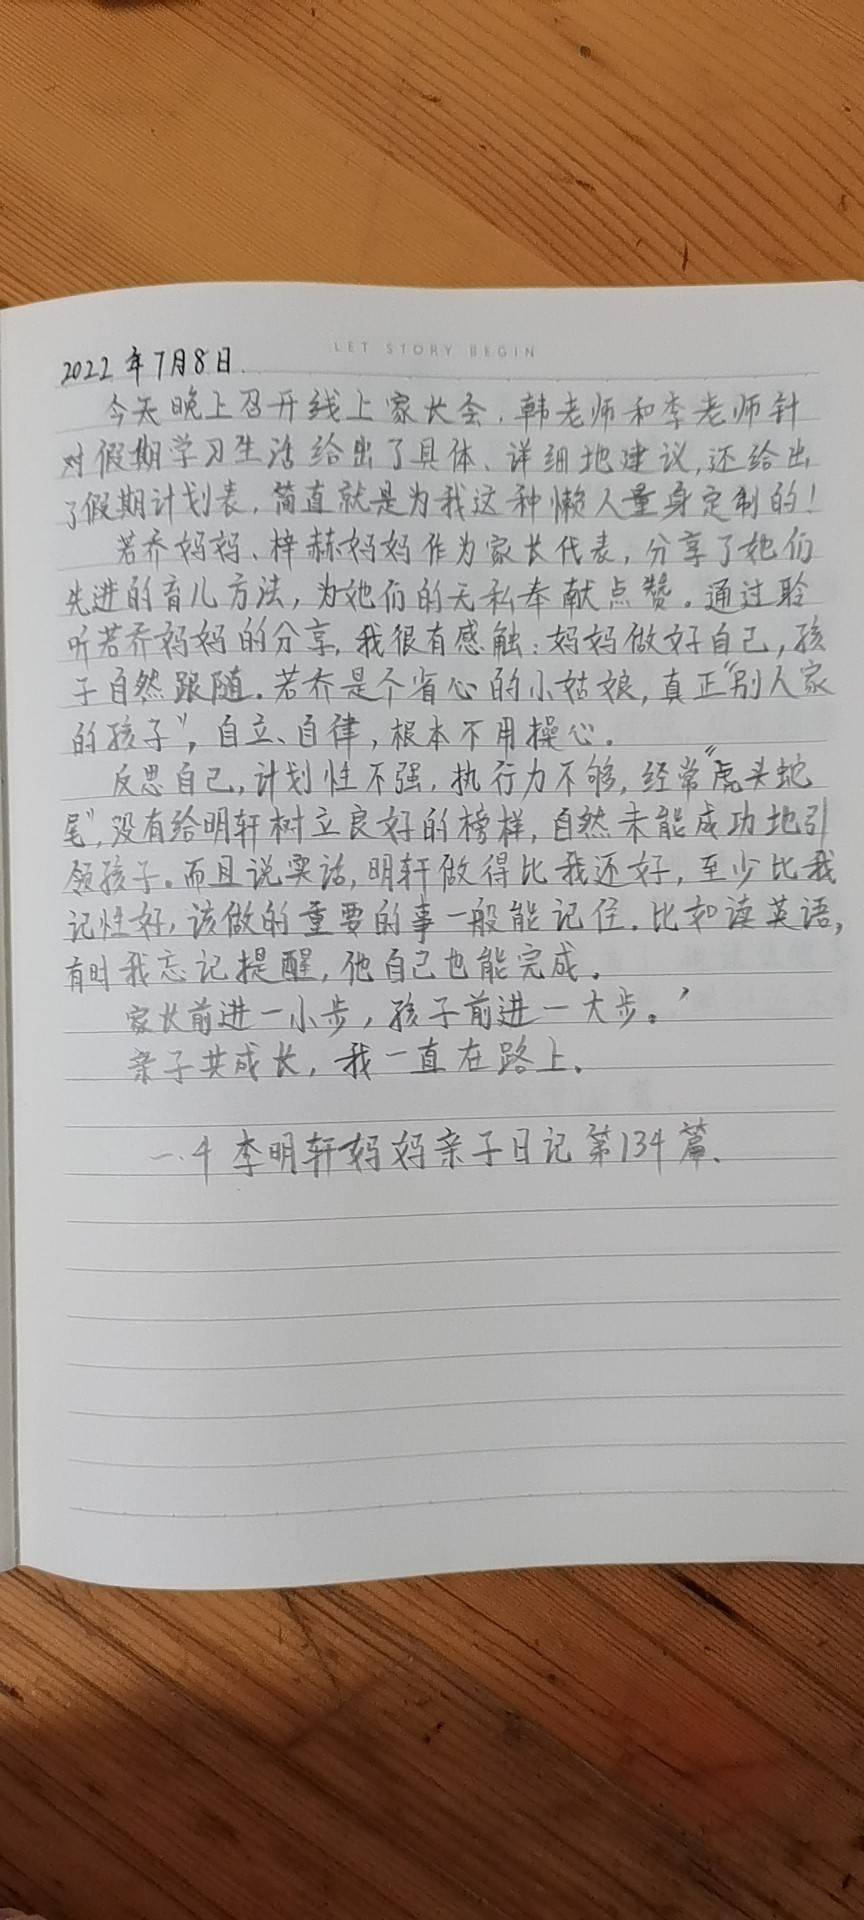 LET STORY BEGIN
2022年7月8日.
今天晚上召开线上家长会，韩老师和李老师针
对假期学习生活给出了具体、详细地建议，还给出
了假期计划表，简直就是为我这种懒人量身定制的！
若乔妈妈、梓赫妈妈作为家长代表，分享了她们
先进的育儿方法，为她们的无私奉献点赞。通过聆
听若乔妈妈的分享，我很有感触：妈妈做好自己，孩
子自然跟随。若乔是个省心的小姑娘，真正“别人家
的孩子”，自立、自律，根本不用操心。
反思自己，计划性不强，执行力不够，经常“虎头蛇
尾”，没有给明轩树立良好的榜样，自然未能成功地引
领孩子。而且说实话，明轩做得比我还好，至少比我
记性好，该做的重要的事一般能记住。比如读英语，
有时我忘记提醒，他自己也能完成。
家长前进一小步，孩子前进一大步。
亲子共成长，我一直在路上。
一.4 李明轩妈妈亲子日记第134篇.